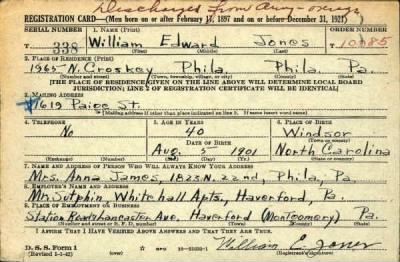 Discharged from Army - overage
REGISTRATION CARD—(Men born on or after February 17, 1897 and on or before December 31, 1921)
SERIAL NUMBER
1. NAME (Print)
ORDER NUMBER
T 338
William Edward Jones
T 10185
(First) (Middle) (Last)
2. PLACE OF RESIDENCE (Print)
1965 N. Croskey Phila. Phila. Pa.
(Number and street) (Town, township, village, or city) (County) (State)
[THE PLACE OF RESIDENCE GIVEN ON THE LINE ABOVE WILL DETERMINE LOCAL BOARD
JURISDICTION; LINE 2 OF REGISTRATION CERTIFICATE WILL BE IDENTICAL]
3. MAILING ADDRESS
1619 Paige St.
[Mailing address if other than place indicated on line 2. If same insert word same]
4. TELEPHONE
5. AGE IN YEARS
6. PLACE OF BIRTH
No
40
Windsor
DATE OF BIRTH
(Town or county)
Aug. 5 1901
North Carolina
(Exchange) (Number)
(Mo.) (Day) (Yr.)
(State or country)
7. NAME AND ADDRESS OF PERSON WHO WILL ALWAYS KNOW YOUR ADDRESS
Mrs. Anna James, 1823 N. 22nd, Phila, Pa.
8. EMPLOYER'S NAME AND ADDRESS
Mr. Sutphin Whitehall Apts., Haverford, Pa.
9. PLACE OF EMPLOYMENT OR BUSINESS
Station Road & Lancaster Ave, Haverford (Montgomery) Pa.
(Number and street or R. F. D. number) (Town) (County) (State)
I AFFIRM THAT I HAVE VERIFIED ABOVE ANSWERS AND THAT THEY ARE TRUE.
D. S. S. Form 1
(Revised 1-1-42)
GPO
William E. Jones
(Registrant's signature)